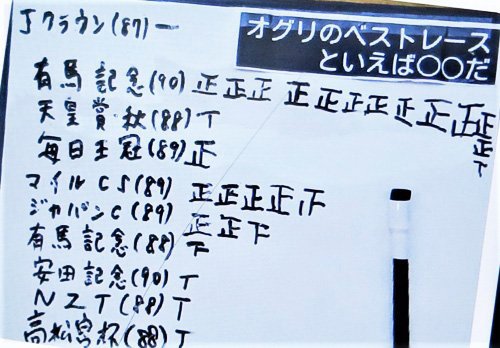 Jクラウン(87)一
オグリのベストレース
といえば〇〇だ
有馬記念(90) 正正正 正正正正正正正正
正
T
天皇賞・秋(88) T
毎日王冠(89) 正
マイルCS(89) 正正正正
ジャパンC(89) 正正下
有馬記念(88) 下
安田記念(90) T
NZT(88) T
高松宮杯(88) T